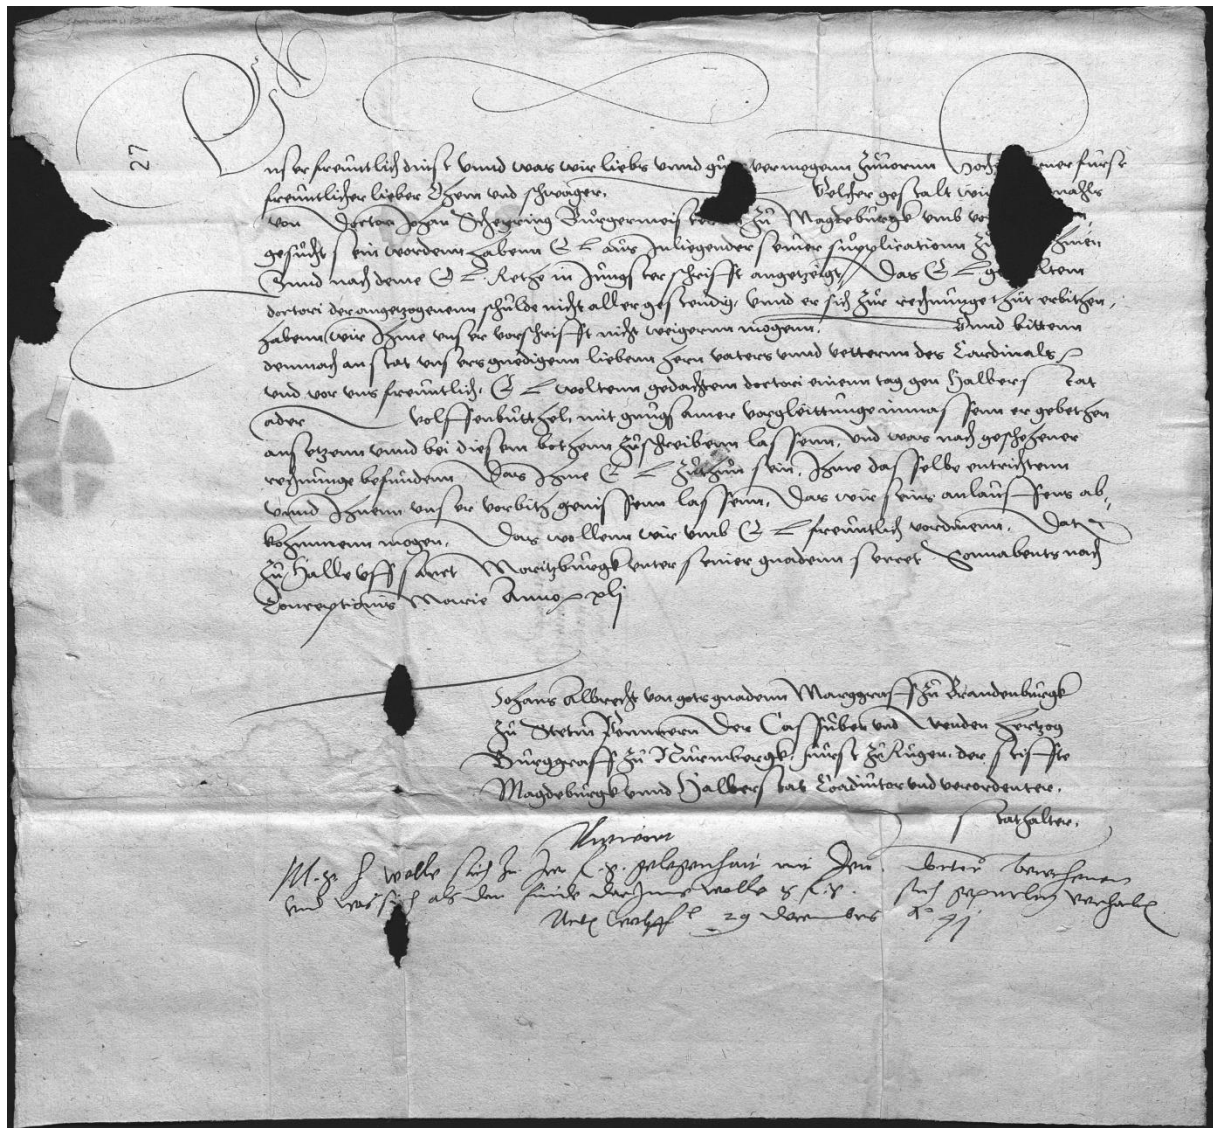 27
Unser freuntlich dinst vnnd was wir liebs vnnd guts vermogenn zuuornn Hoch ener furst
freuntlicher lieber Ohem vnd schwager. Welcher gestalt wir mahls
von Doctor Johan Scheyring Burgermeister zu Magdeburgk vmb vor
gesucht sein wordenn habenn E L aus Inliegender seiner supplicationn zu hmen
Vnnd nach deme E L Rethe in Jungster schrifft angetzeigt, Das E L ge ltem
doctori der angetzogenenn schulde nicht aller gestendig, vnnd er sich zur rechnunge thut erbithen,
habenn wir Ihme vnser vorschrifft nicht weigernn mogenn. Vnnd bittenn
demnach an stat vnsers gnedigenn liebenn hern vaters vnnd vetternn des Cardinals
vnd vor vns freuntlich, E L woltenn gedachtem doctori einenn tag gen Halberstat
ader Wolffenbutthel, mit gnugsamer vorgleittunge inmassenn er gebethen
ansetzenn vnnd bei diesem bothenn zuschreibenn lassenn, vnd was nach geschehener
rechnunge befundenn, Das Ihme E L zuthun sein, Ihme dasselbe entrichtenn
vnnd Ihnenn vnser vorbith geniessenn lassenn, Das wir seins anlauffens ab,
kohmmenn mogen, Das wollenn wir vmb E L freuntlich vordinenn, Dat
zu Halle vff sanct Moritzburgk vnter seiner gnadenn secret Sonnabents nach
Conceptionis Marie Anno xlj
Johans Albrecht von gots gnadenn Marggraff zu Brandenburgk
zu Stetin Pommern Der Cassuben vnd Wenden hertzog
Burggraff zu Nurembergk, furst zu Rugen, der stiffte
Magdeburgk vnnd Halberstat Coadiutor vnd verordenter,
stathalter,
Antwort
M. g. h wolle sich zu Irer f. g. gelegenhait mit dem doctor berechenen
vnd was sich als dan finde darInne wolle s f. g. sich geburlich verhalten
Wolff 29 decembris Ao 41